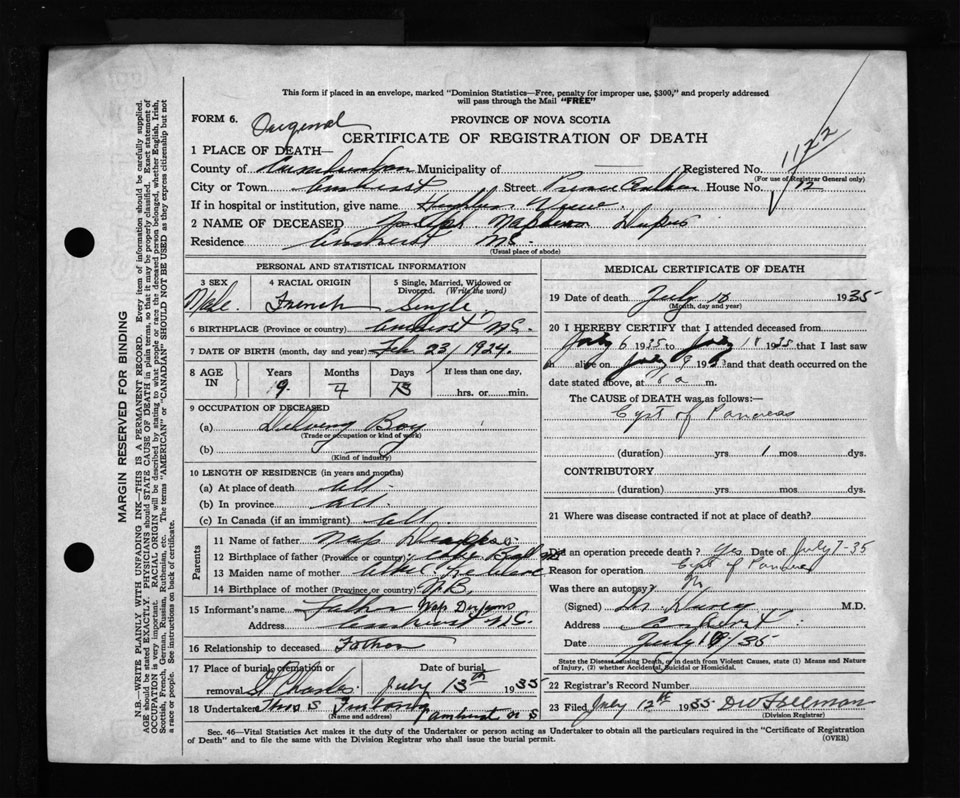 This form if placed in an envelope, marked "Dominion Statistics—Free, penalty for improper use, $300," and properly addressed
will pass through the Mail "FREE"
FORM 6. Original
PROVINCE OF NOVA SCOTIA
CERTIFICATE OF REGISTRATION OF DEATH
1 PLACE OF DEATH—
County of Cumberland Municipality of Registered No. 1122
(For use of Registrar General only)
City or Town Amherst Street Prince Arthur House No. 12
If in hospital or institution, give name Highland View
2 NAME OF DECEASED Joseph Napoleon
Residence Amherst N.S.
(Usual place of abode)
PERSONAL AND STATISTICAL INFORMATION
3 SEX Male
4 RACIAL ORIGIN French
5 Single, Married, Widowed or Divorced. (Write the word) Single
6 BIRTHPLACE (Province or country) Amherst N.S.
7 DATE OF BIRTH (month, day and year) Feb. 23/1924.
8 AGE IN
Years Months Days If less than one day,
9 4 hrs. or min.
9 OCCUPATION OF DECEASED
(a) Boy
(Trade or occupation or kind of work)
(b)
(Kind of industry)
10 LENGTH OF RESIDENCE (in years and months)
(a) At place of death all
(b) In province all
(c) In Canada (if an immigrant) all.
Parents
11 Name of father Nap
12 Birthplace of father (Province or country) Cape
13 Maiden name of mother
14 Birthplace of mother (Province or country) N.B.
15 Informant's name Father Nap
Address Amherst N.S.
16 Relationship to deceased Father
17 Place of burial, cremation or removal St Charles Date of burial July 13th 1935
18 Undertaker Thos S
(Name and address) Amherst N S
MEDICAL CERTIFICATE OF DEATH
19 Date of death July 10 1935
(Month, day and year)
20 I HEREBY CERTIFY that I attended deceased from
July 6 1935 to July 1935 that I last saw
alive on July 9 1935 and that death occurred on the
date stated above, at a m.
The CAUSE of DEATH was as follows:—
Cyst of Pancreas
(duration) yrs 1 mos dys.
CONTRIBUTORY
(duration) yrs. mos. dys.
21 Where was disease contracted if not at place of death?
Did an operation precede death? Yes Date of July 7-35
Reason for operation Cyst of Pancreas
Was there an autopsy? No
(Signed) M.D.
Address Amherst
Date July /35
State the Disease causing Death, or in death from Violent Causes, state (1) Means and Nature
of Injury, (2) whether Accidental, Suicidal or Homicidal.
22 Registrar's Record Number
23 Filed July 12th 1935
(Division Registrar)
Sec. 46—Vital Statistics Act makes it the duty of the Undertaker or person acting as Undertaker to obtain all the particulars required in the "Certificate of Registration
of Death" and to file the same with the Division Registrar who shall issue the burial permit.
(OVER)
MARGIN RESERVED FOR BINDING
N.B.—WRITE PLAINLY WITH UNFADING INK—THIS IS A PERMANENT RECORD. Every item of information should be carefully supplied.
AGE should be stated EXACTLY. PHYSICIANS should STATE CAUSE OF DEATH in plain terms, so that it may be properly classified. Exact statement of
OCCUPATION is very important. RACIAL ORIGIN will be described by stating to what people or race the deceased person belonged, whether English, Irish,
Scottish, French, German, Russian, Ruthenian, etc. The terms "AMERICAN" or "CANADIAN" SHOULD NOT BE USED as they express citizenship but not
a race or people. See instructions on back of certificate.